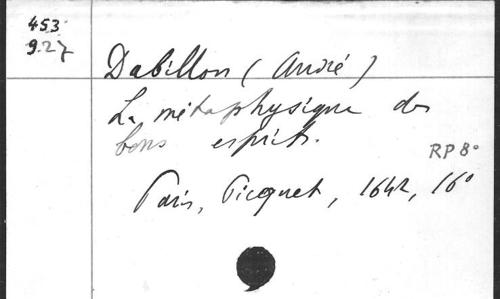 453
9.27
Dabillon (André)
La métaphysique des
bons esprits.
RP 8°
Paris, Picquet, 1642, 16°